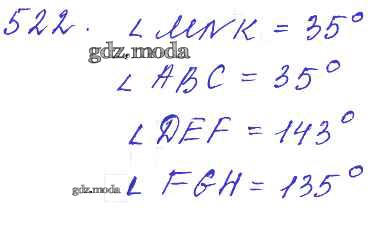 522. ∠ MNK = 35°
gdz.moda
∠ ABC = 35°
∠ DEF = 143°
gdz.moda
∠ FGH = 135°